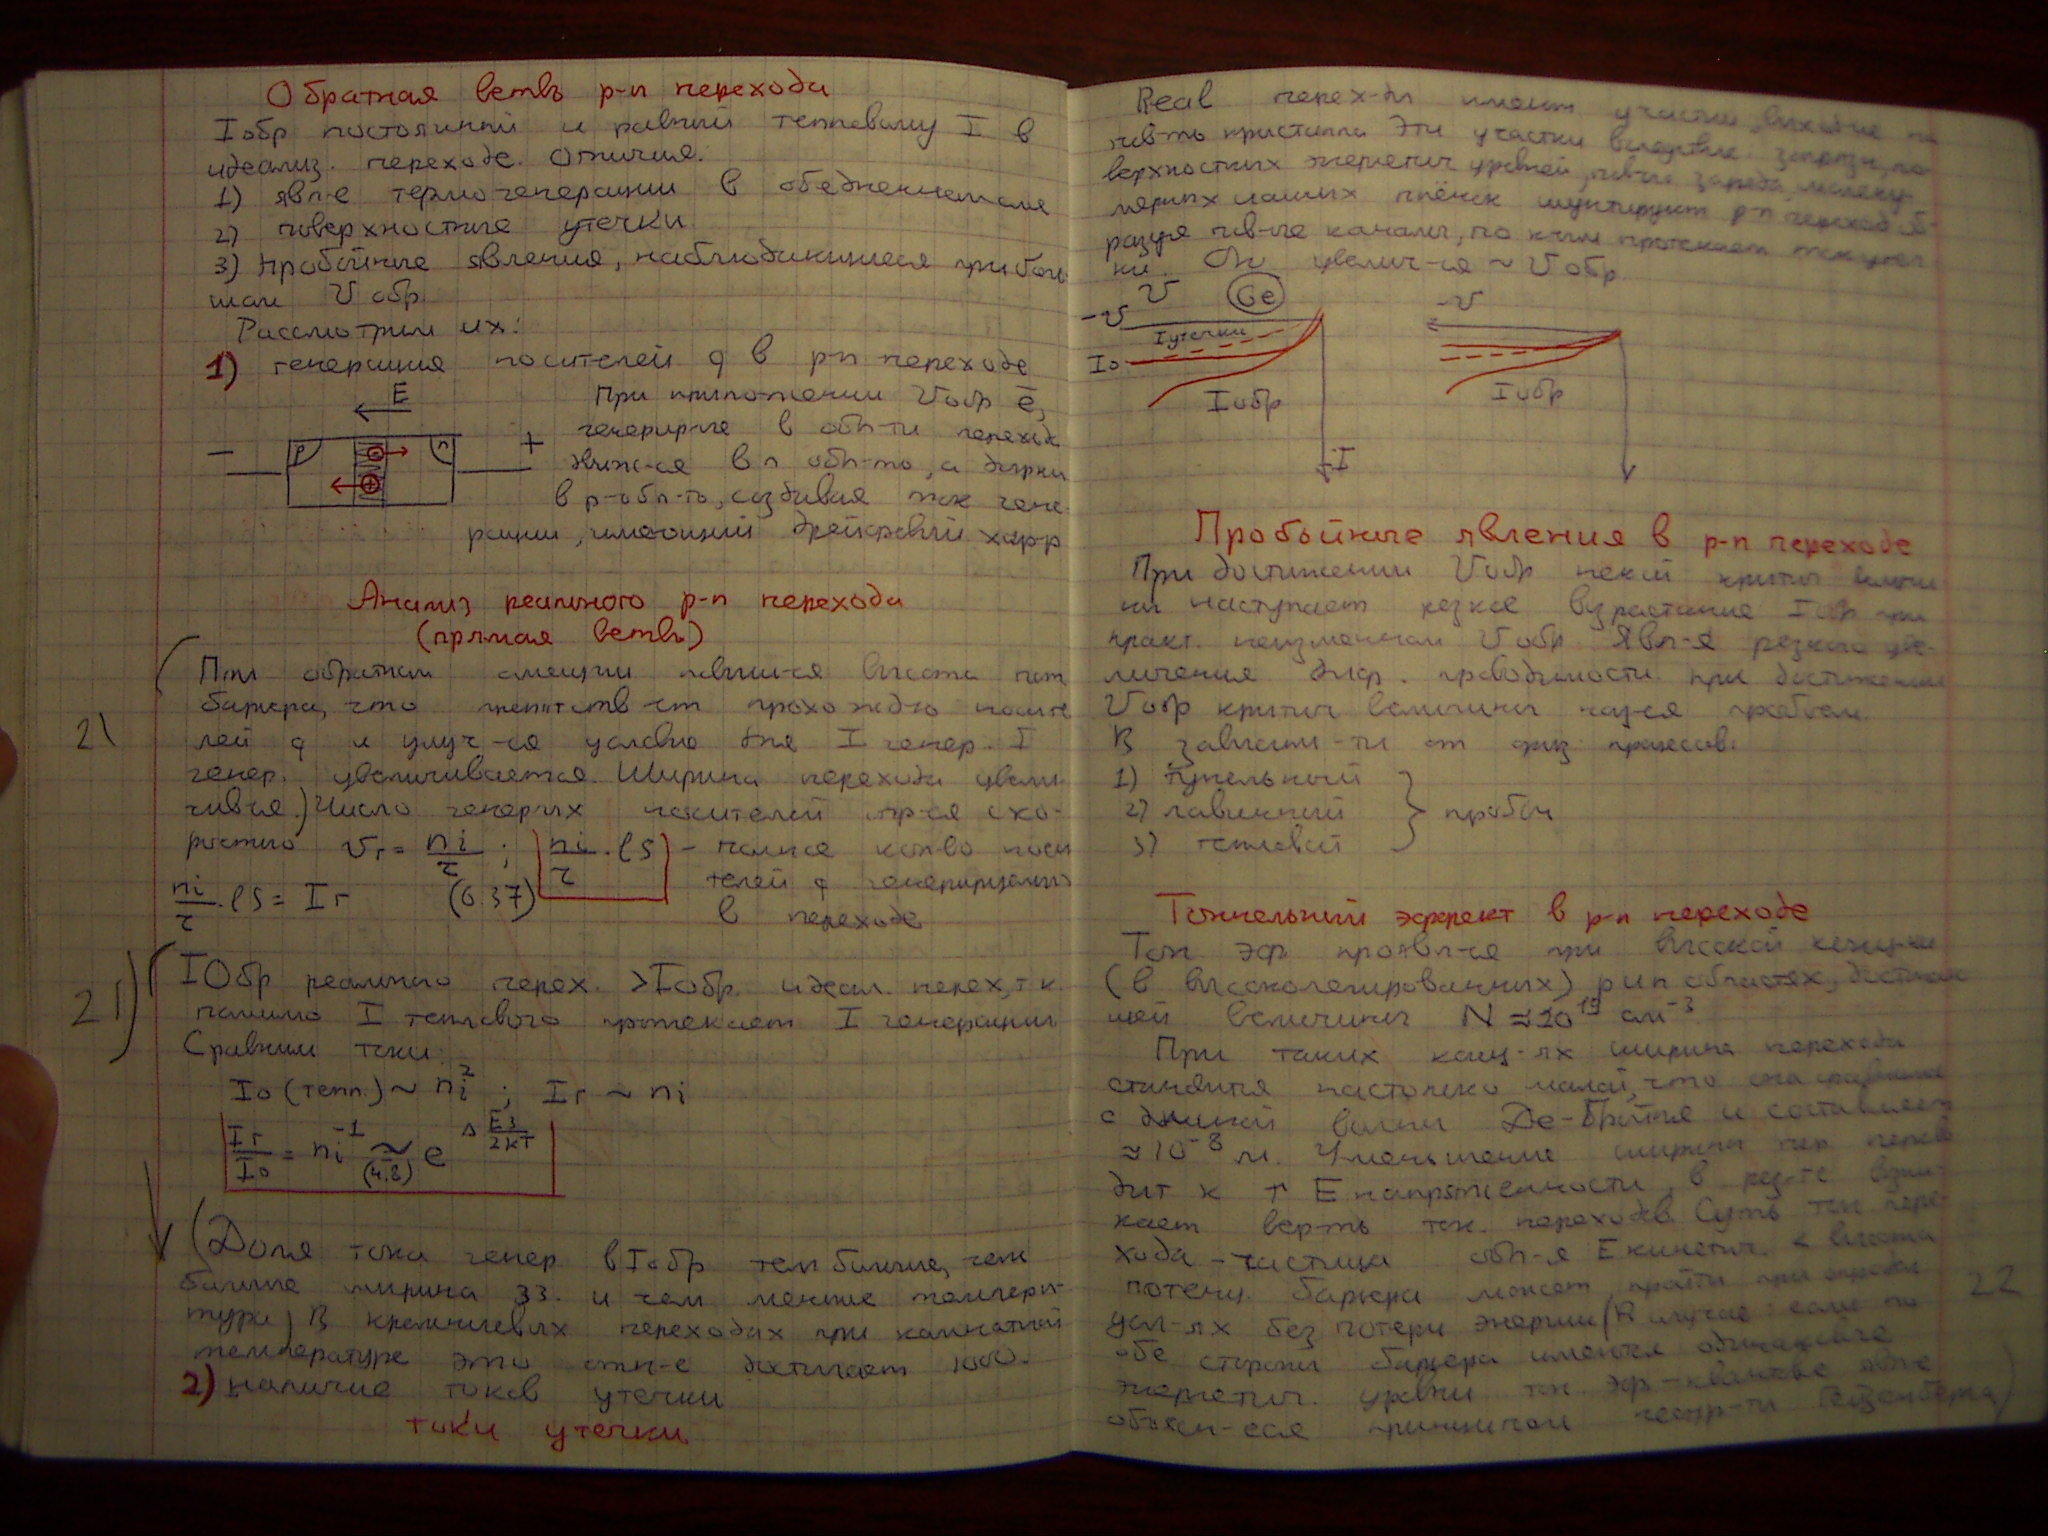 Обратная ветвь p-n перехода
Iобр постоянный и равный тепловому I в
идеализ. переходе. Отличия:
1) явл-е термогенерации в обеднённом
2) поверхностные утечки
3) пробойные явления, наблюдающиеся при боль
шом Vобр
Рассмотрим их:
1) генерация носителей q в p-n переходе
E
При приложении Vобр ē,
генерир-ые в обл-ти переход
- p n +
движ-ся в n обл-ть, а дырки
в p-обл-ть, создавая ток гене
рации, имеющий дрейфовый хар-р
Анализ реального p-n перехода
(прямая ветвь)
При обратном смещении повыш-ся высота пот
барьера, что препятств-ет прохожд-ю носите
лей q и улуч-ся условие для I генер. I
21
генер. увеличивается. Ширина перехода увели
чив-ся.) Число генер-ых носителей опр-ся ско-
ростью Vг = ni/τ ; ni/τ · lS - полное кол-во носи
телей q генерируемых
ni/τ · lS = Iг (6.37)
в переходе
21)
(IОбр реального перех. > Iобр. идеал. перех, т.к.
помимо I теплового протекает I генерации
Сравним токи:
I0 (тепл.) ~ ni² ; Iг ~ ni
Iг/I0 = ni⁻¹ ≈ (4.8) e^(ΔEз/2kT)
(Доля тока генер в Iобр тем больше, чем
больше ширина ЗЗ. и чем меньше темпера-
тура) В кремниевых переходах при комнатной
температуре это отн-е достигает 1000.
2) наличие токов утечки
токи утечки
Real перех-ды имеют участки, выход-ие на
пов-ть кристалла. Эти участки вследствие загрязн, по
верхностных энергетич уровней, заряда, молеку
лярных плёнок шунтируют p-n переход об-
разуя пов-ые каналы, по к-ым протекает ток утеч
ки. Он увелич-ся ~ Vобр.
V Ge -V
-V
Iутечки
I0
Iобр Iобр
I
Пробойные явления в p-n переходе
При достижении Vобр некой критич величи
ны наступает резкое возрастание Iобр при
практ. неизменном Vобр. Явл-я резкого уве-
личения диф. проводимости при достижении
Vобр критич величины наз-ся пробоем.
В зависим-ти от физ. процессов:
1) тунельный
2) лавинный } пробой
3) тепловой
Тоннельный эффект в p-n переходе
Тон эф проявл-ся при высокой концентр
(в высоколегированных) p и n областях, достиг
шей величины N ≈ 10¹⁹ см⁻³
При таких конц-ях ширина перехода
становится настолько малой, что она сравнима
с длиной волны Де-Бройля и составляет
≈ 10⁻⁸ м. Уменьшение ширины пер приво
дит к ↑ E напряженности, в рез-те возни-
кает вер-ть тон. переходов. Суть тон пере-
хода - частица обл-я E кинетич. < высота
потенц. барьера может пройти при опреде
усл-ях без потери энергии (В случае если по
22
обе стороны барьера имеются одинаковые
энергетич. уровни тон эф - квантовое явление
объясн-еся принципом неопр-ти Гейзенберга)